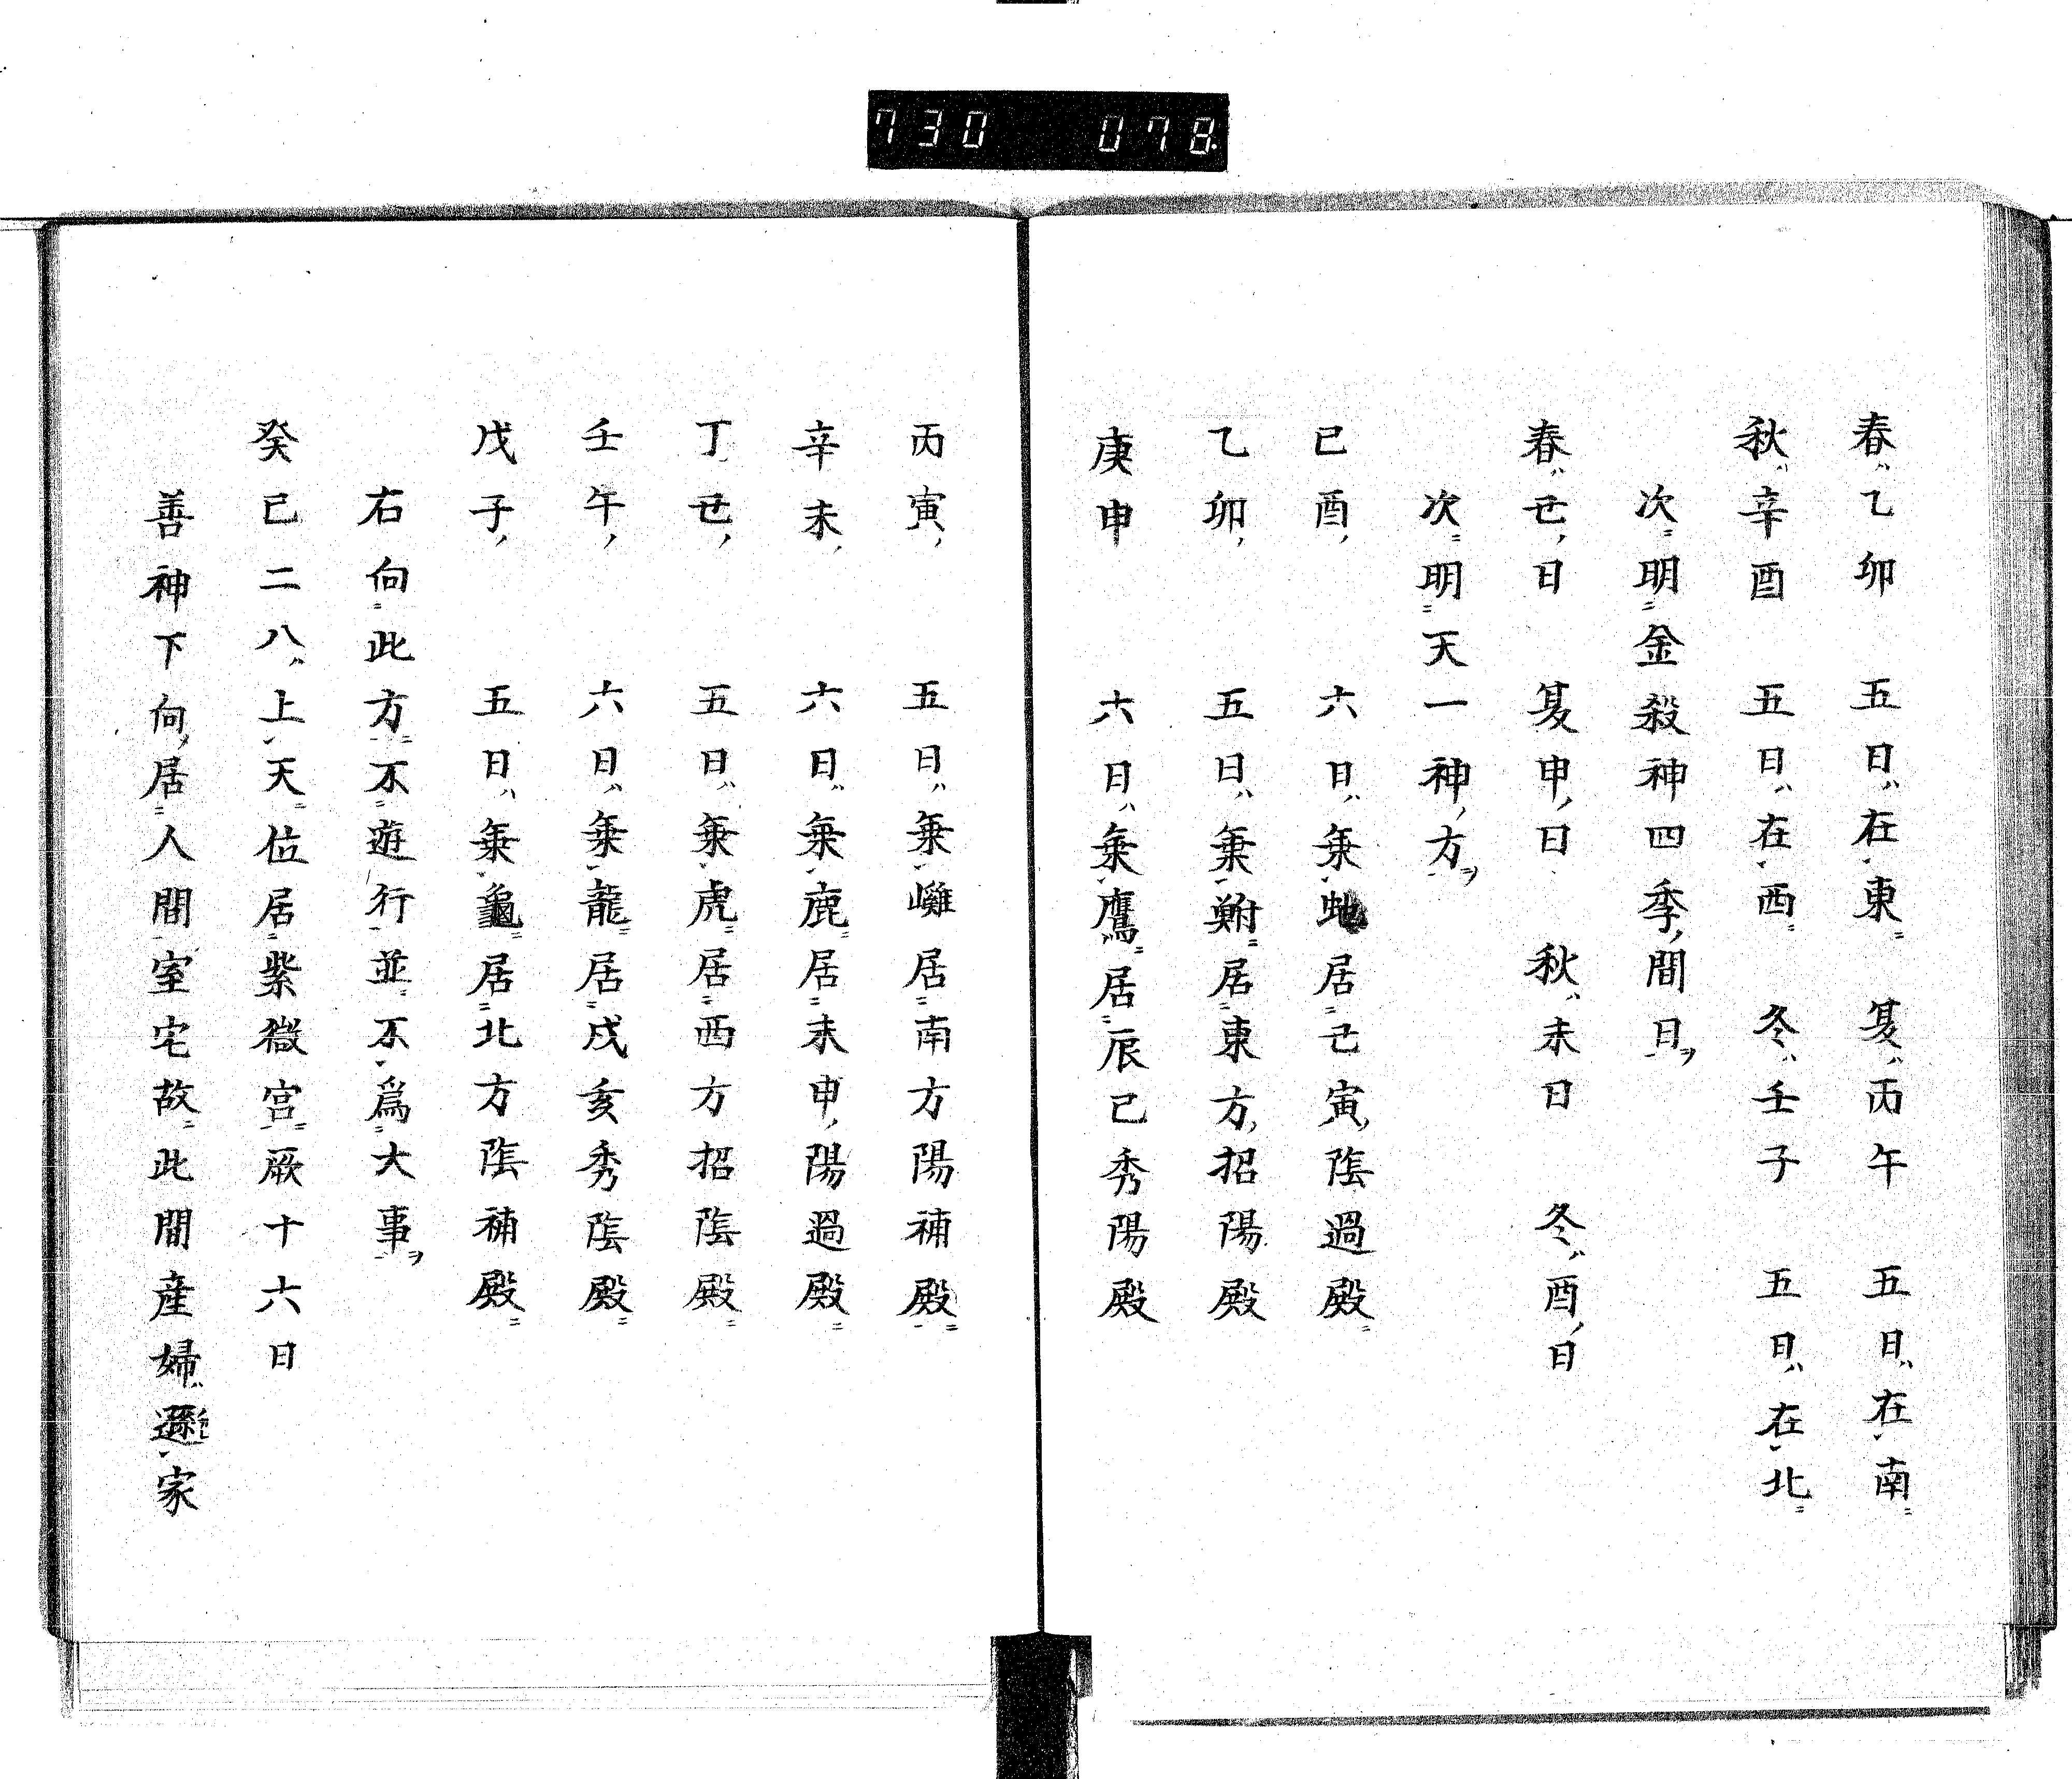 730 078
春ハ乙卯 五日ハ在東ニ 夏ハ丙午 五日ハ在南ニ
秋ハ辛酉 五日ハ在西ニ 冬ハ壬子 五日ハ在北ニ
次ニ明ニ金殺神四季ノ間日ヲ
春ハ丑ノ日 夏申ノ日 秋ハ未日 冬ハ酉ノ日
次ニ明ニ天一神ノ方ヲ
己酉ノ 六日ハ乗虵居己寅ノ陰過殿ニ
乙卯ノ 五日ハ乗 居ニ東方ノ招陽殿
庚申 六日ハ乗鷹ニ居ニ辰巳秀陽殿
丙寅ノ 五日ハ乗 居ニ南方陽補殿ニ
辛未ノ 六日ハ乗鹿ニ居ニ未申ノ陽過殿ニ
丁丑ノ 五日ハ乗虎ニ居ニ西方招陰殿ニ
壬午ノ 六日ハ乗龍ニ居ニ戌亥秀陰殿ニ
戊子ノ 五日ハ乗龜ニ居ニ北方陰補殿ニ
右向ニ此方ニ不遊行並ニ不為ニ大事ヲ
癸巳二八ハ上天ニ位居ニ紫微宮ニ厥十六日
善神下向ノ居ニ人間室宅故ニ此間産婦ハ遜家